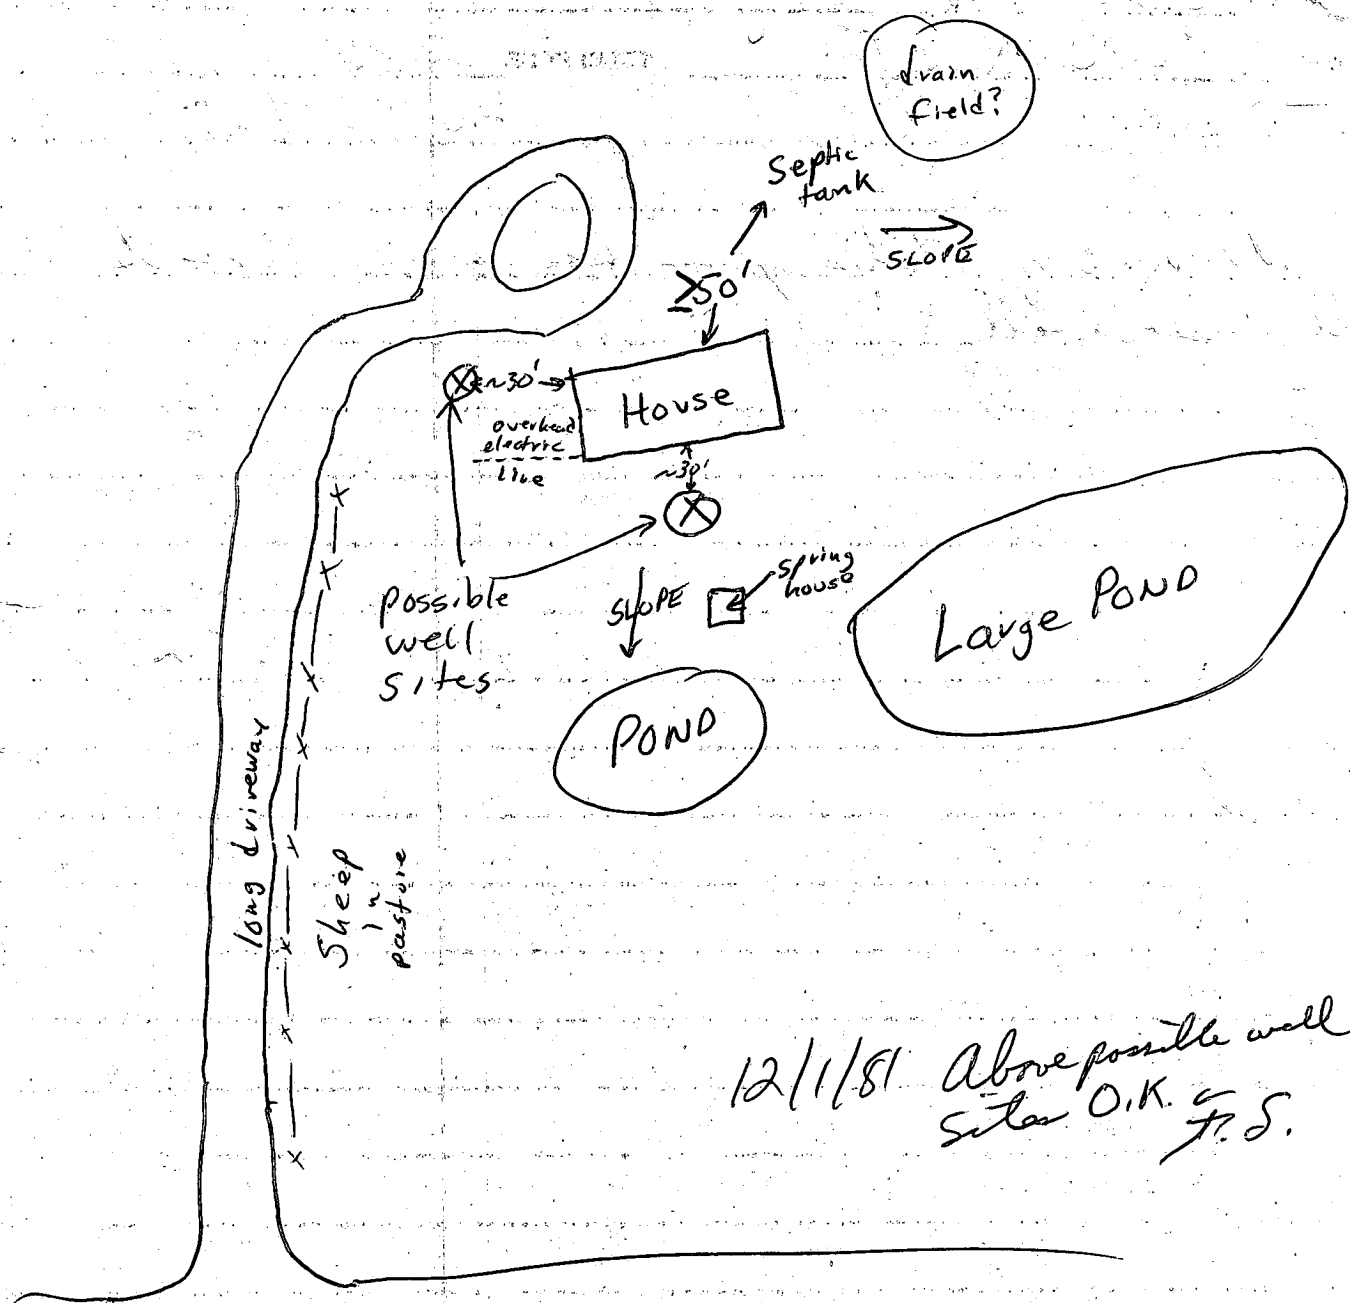 drain
field?
Septic
tank
SLOPE
≥50'
~30'
House
overhead
electric
line
~30'
possible
well
sites
SLOPE
spring
house
Large POND
POND
long driveway
Sheep
in
pasture
12/1/81 Above possible well
sites O.K.
F.S.